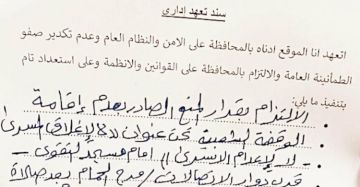 سند تعهد اداري
اتعهد انا الموقع ادناه بالمحافظة على الامن والنظام العام وعدم تكدير صفو
الطمأنينة العامة والالتزام بالمحافظة على القوانين والانظمة وعلى استعداد تام
بتنفيذ ما يلي:
الالتزام بقرار المنع الصادر بعدم إقامة
الوقفة تحت عنوان
لا لإعدام الأسرى امام مسجد التقوى
قرب دوار بعد صلاة